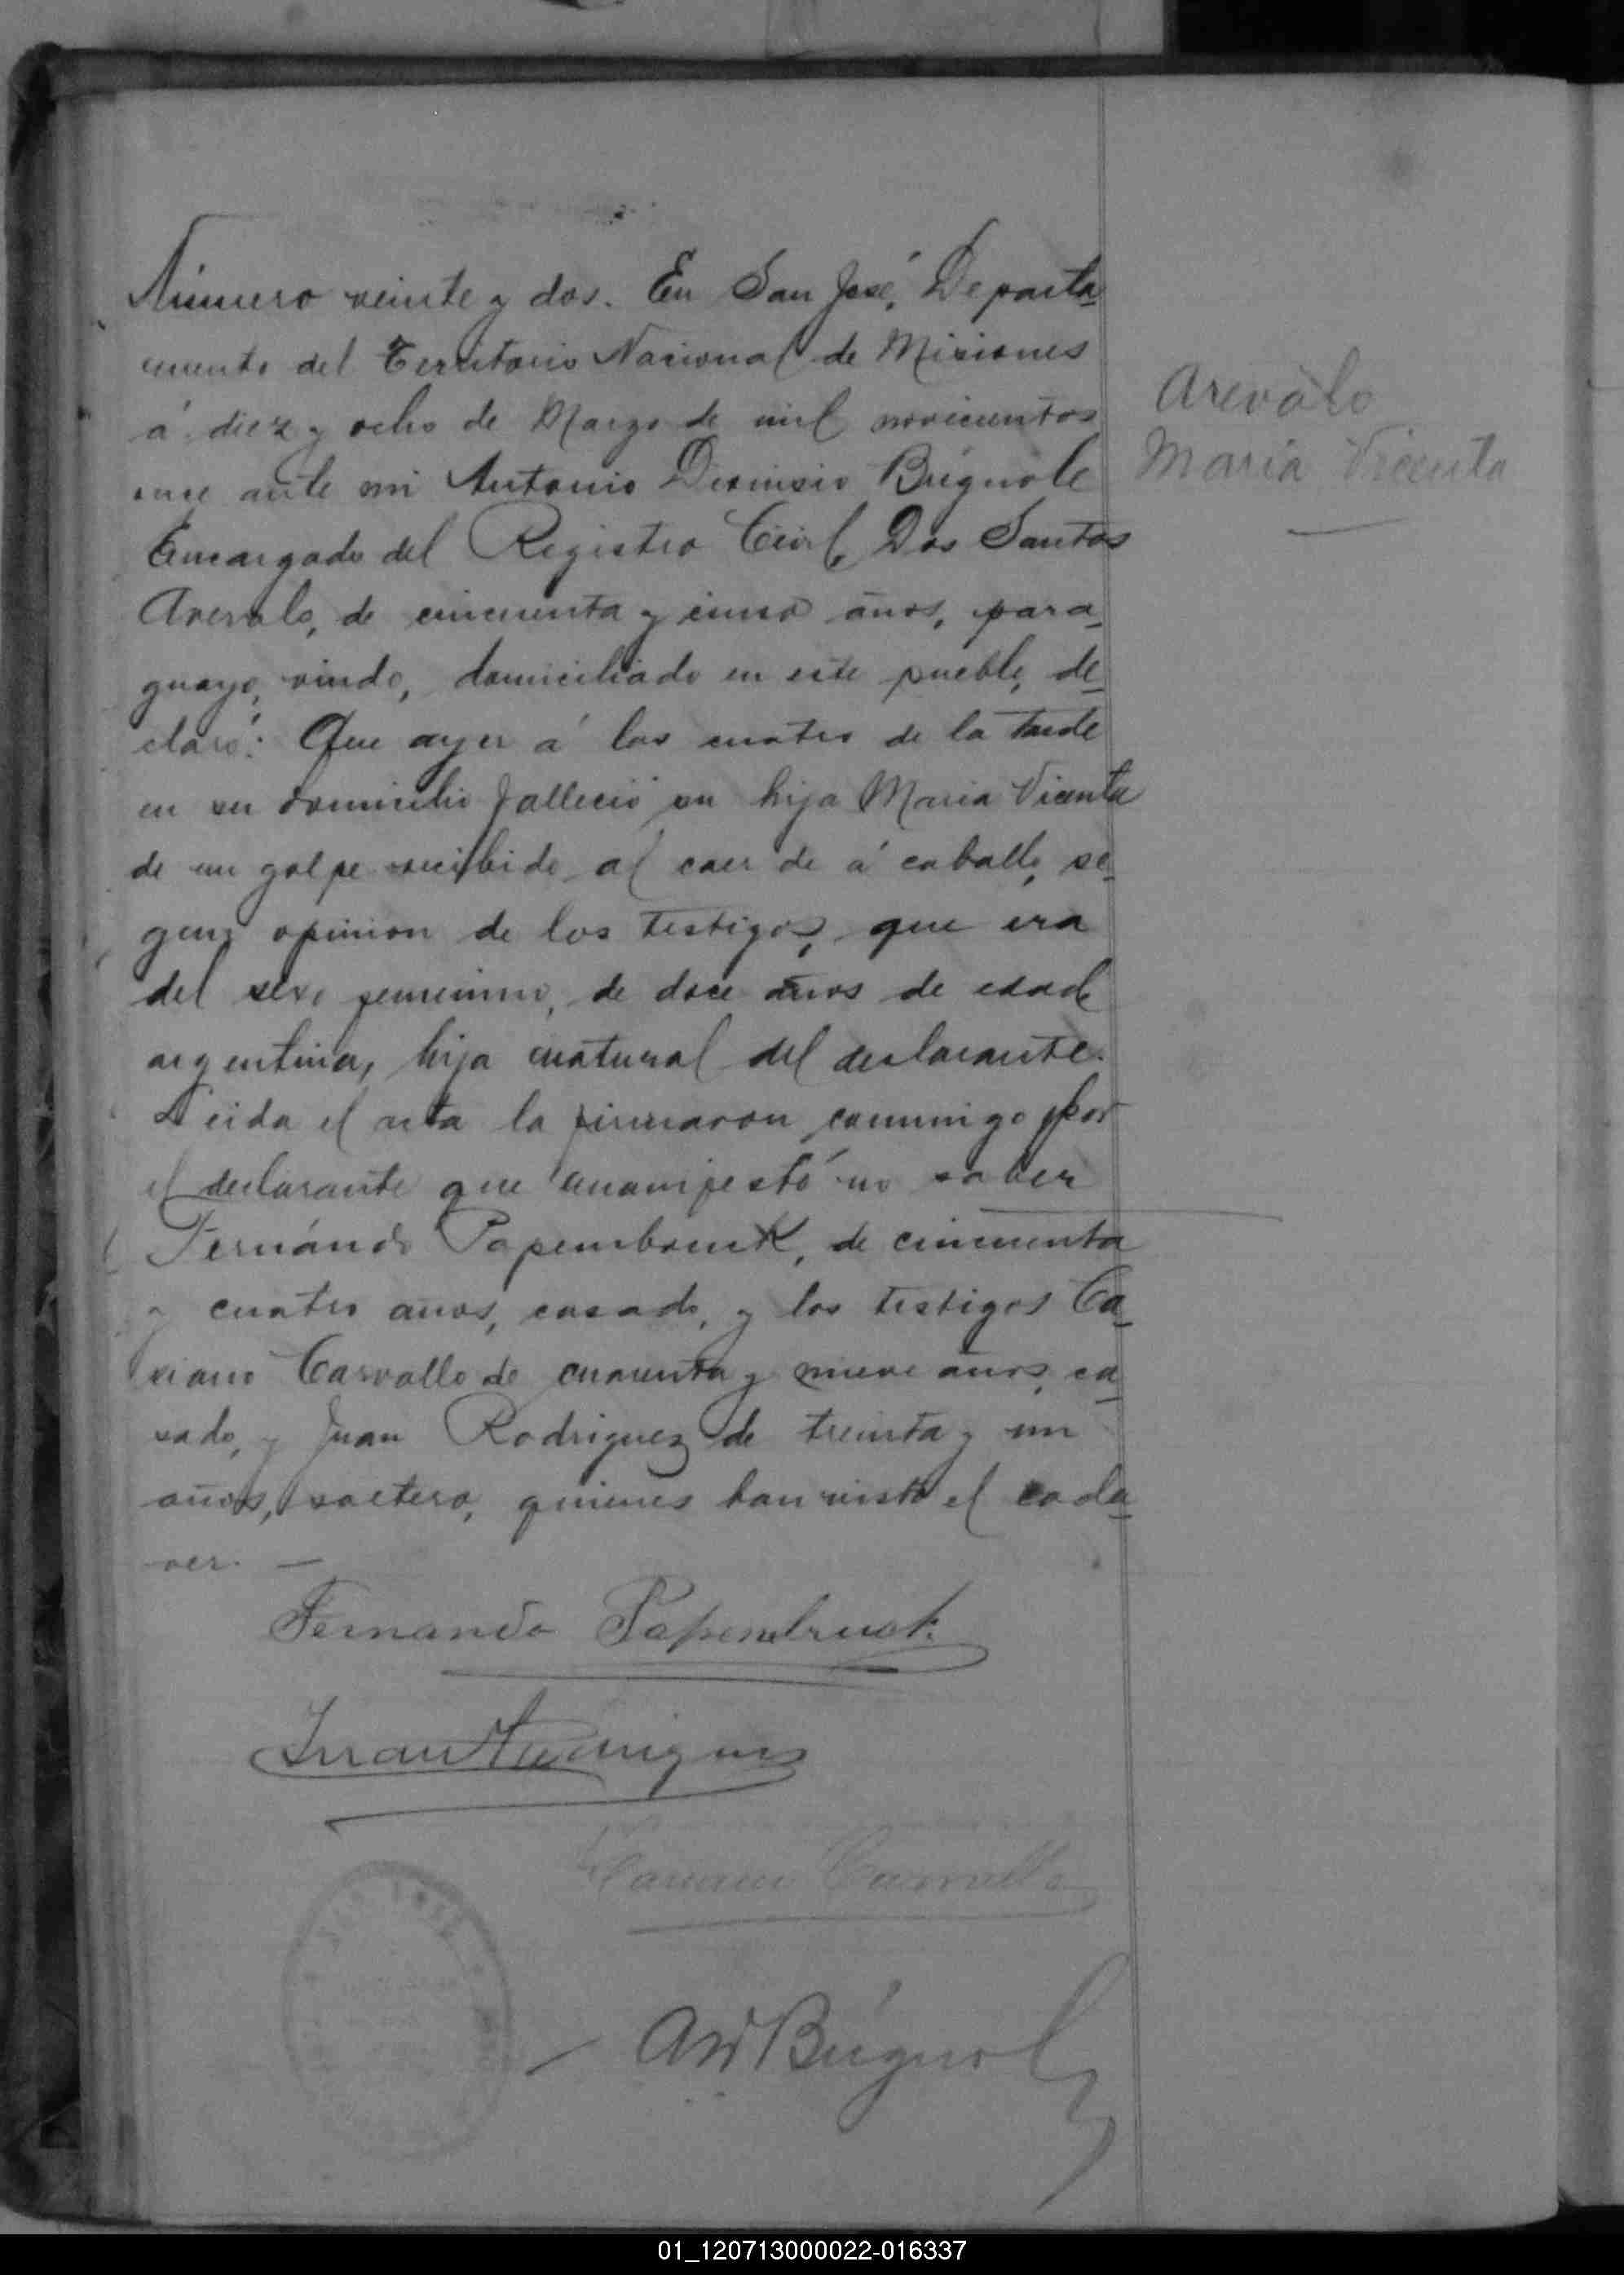 Número veinte y dos. En San José, Departa-
mento del Territorio Nacional de Misiones
á diez y ocho de Marzo de mil novecientos
once ante mi Antonio Dionisio Búgnole
Encargado del Registro Civil, Dos Santos
Arevalo, de cincuenta y cinco años, para-
guayo, viudo, domiciliado en este pueblo, de-
claró: Que ayer á las cuatro de la tarde
en su domicilio falleció su hija Maria Vicenta
de un golpe recibido al caer de á caballo, se-
gun opinion de los testigos, que era
del sexo femenino, de doce años de edad
argentina, hija natural del declarante.
Leida el acta la firmaron conmigo por
el declarante que manifestó no saber
Fernándo Papembrouck, de cincuenta
y cuatro años, casado, y los testigos Ca-
siano Carvallo de cuarenta y nueve años, ca-
sado, y Juan Rodriguez de treinta y un
años, soltero, quienes han visto el cada-
ver. —
Arevalo
Maria Vicenta
Fernando Papenbruck
Juan Rodrigues
Carvallo
SAN JOSE
AD Búgnol
01_120713000022-016337